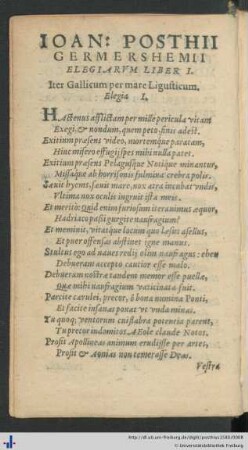 IOAN: POSTHII
GERMERSHEMII
ELEGIARVM LIBER I.
Iter Gallicum per mare Ligusticum.
Elegia I.
HActenus afflictam per mille pericula vitam
Exegi, & nondum, quem peto, finis adest.
Exitium præsens video, mortemque paratam,
Hinc misero effugij spes mihi nulla patet.
Exitium præsens Pelagusque Notique minantur,
Missaque ab horrisono fulmina crebra polo.
Sævit hyems, sævit mare, nox atra incubat vndis,
Vltima nox oculis ingruit ista meis.
Et merito: Quid enim furiosum iter avimus æquor,
Hadriaco passi gurgite naufragium?
Et meminit, vitatque locum quo læsus asellus,
Et puer offensas abstinet igne manus.
Stultus ego ad naues redij olim naufragus: eheu
Debueram accepto cautior esse malo.
Debueram nostræ tandem memor esse puellæ,
Quæ mihi naufragium vaticinata fuit.
Parcite cærulei, precor, ô bona numina Ponti,
Et facite insanas ponat vt vnda minas.
Tu quoq; ventorum cui flabra potentia parent,
Tu precor indomitos Æole claude Notos.
Prosit Apollineas animum erudisse per artes,
Prosit & Aonias non temerasse Deas.
Vestra